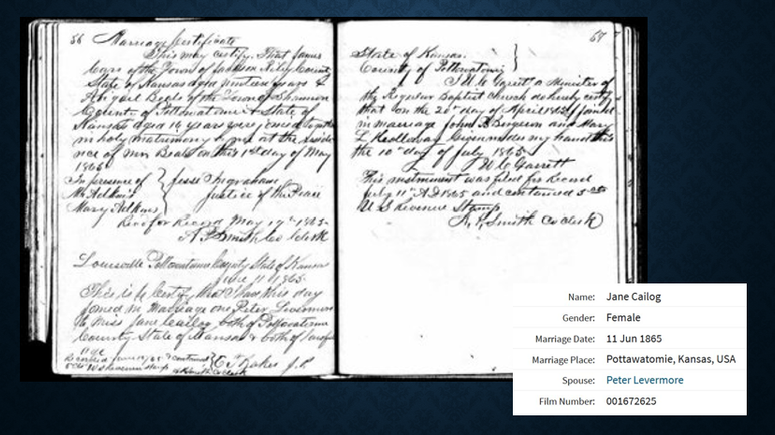 56 Marriage Certificate
This may certify. That James
of the Town of Jackson Riley County
State of Kansas aged nineteen years &
Abigail of the Town of Shannon
County of Pottowatomie & State of
Kansas aged 18 years were joined together
in holy matrimony by me at the reside
nce of Mr on this 1st day of May
1865
In presence of } Jesse Ingraham
Mr Adkins Justice of the Peace
Mary Adkins
for Record May 1865
A P Smith Co Clerk
Louisville Pottowatomie County State of Kansas
June 11 1865
This is to certify that I have this day
joined in Marriage one Peter Levermore
to Miss Jane both of Pottowatomie
County State of Kansas & both of
age
E J J.P.
57
State of Kansas }
County of Pottowatomie
I W C Garrett a Minister of
the Regular Baptist Church do hereby certify
that on the day of April 1865 I joined
in marriage John B and Mary
L Holloway Given under my hand this
the 10th day of July 1865
W C Garrett
This instrument was filed for Record
July 11th A.D 1865 and contained 5 cts
U S Revenue Stamp
A P Smith Co Clerk
Name: Jane Cailog
Gender: Female
Marriage Date: 11 Jun 1865
Marriage Place: Pottawatomie, Kansas, USA
Spouse: Peter Levermore
Film Number: 001672625